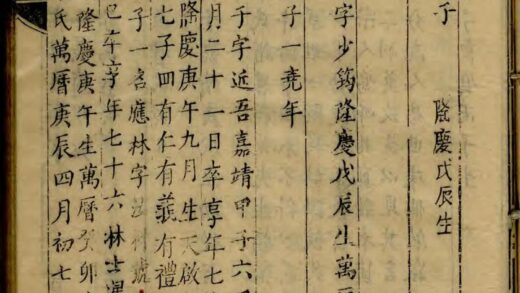 子
隆慶戊辰生
字少筠隆慶戊辰生萬
子一堯年
于字近吾嘉靖甲子六
月二十一日卒享年七
隆慶庚午九月生天啟
七子四有仁有義有禮
子一名應林字
午享年七十六林
隆慶庚午生萬曆癸卯
氏萬曆庚辰四月初七